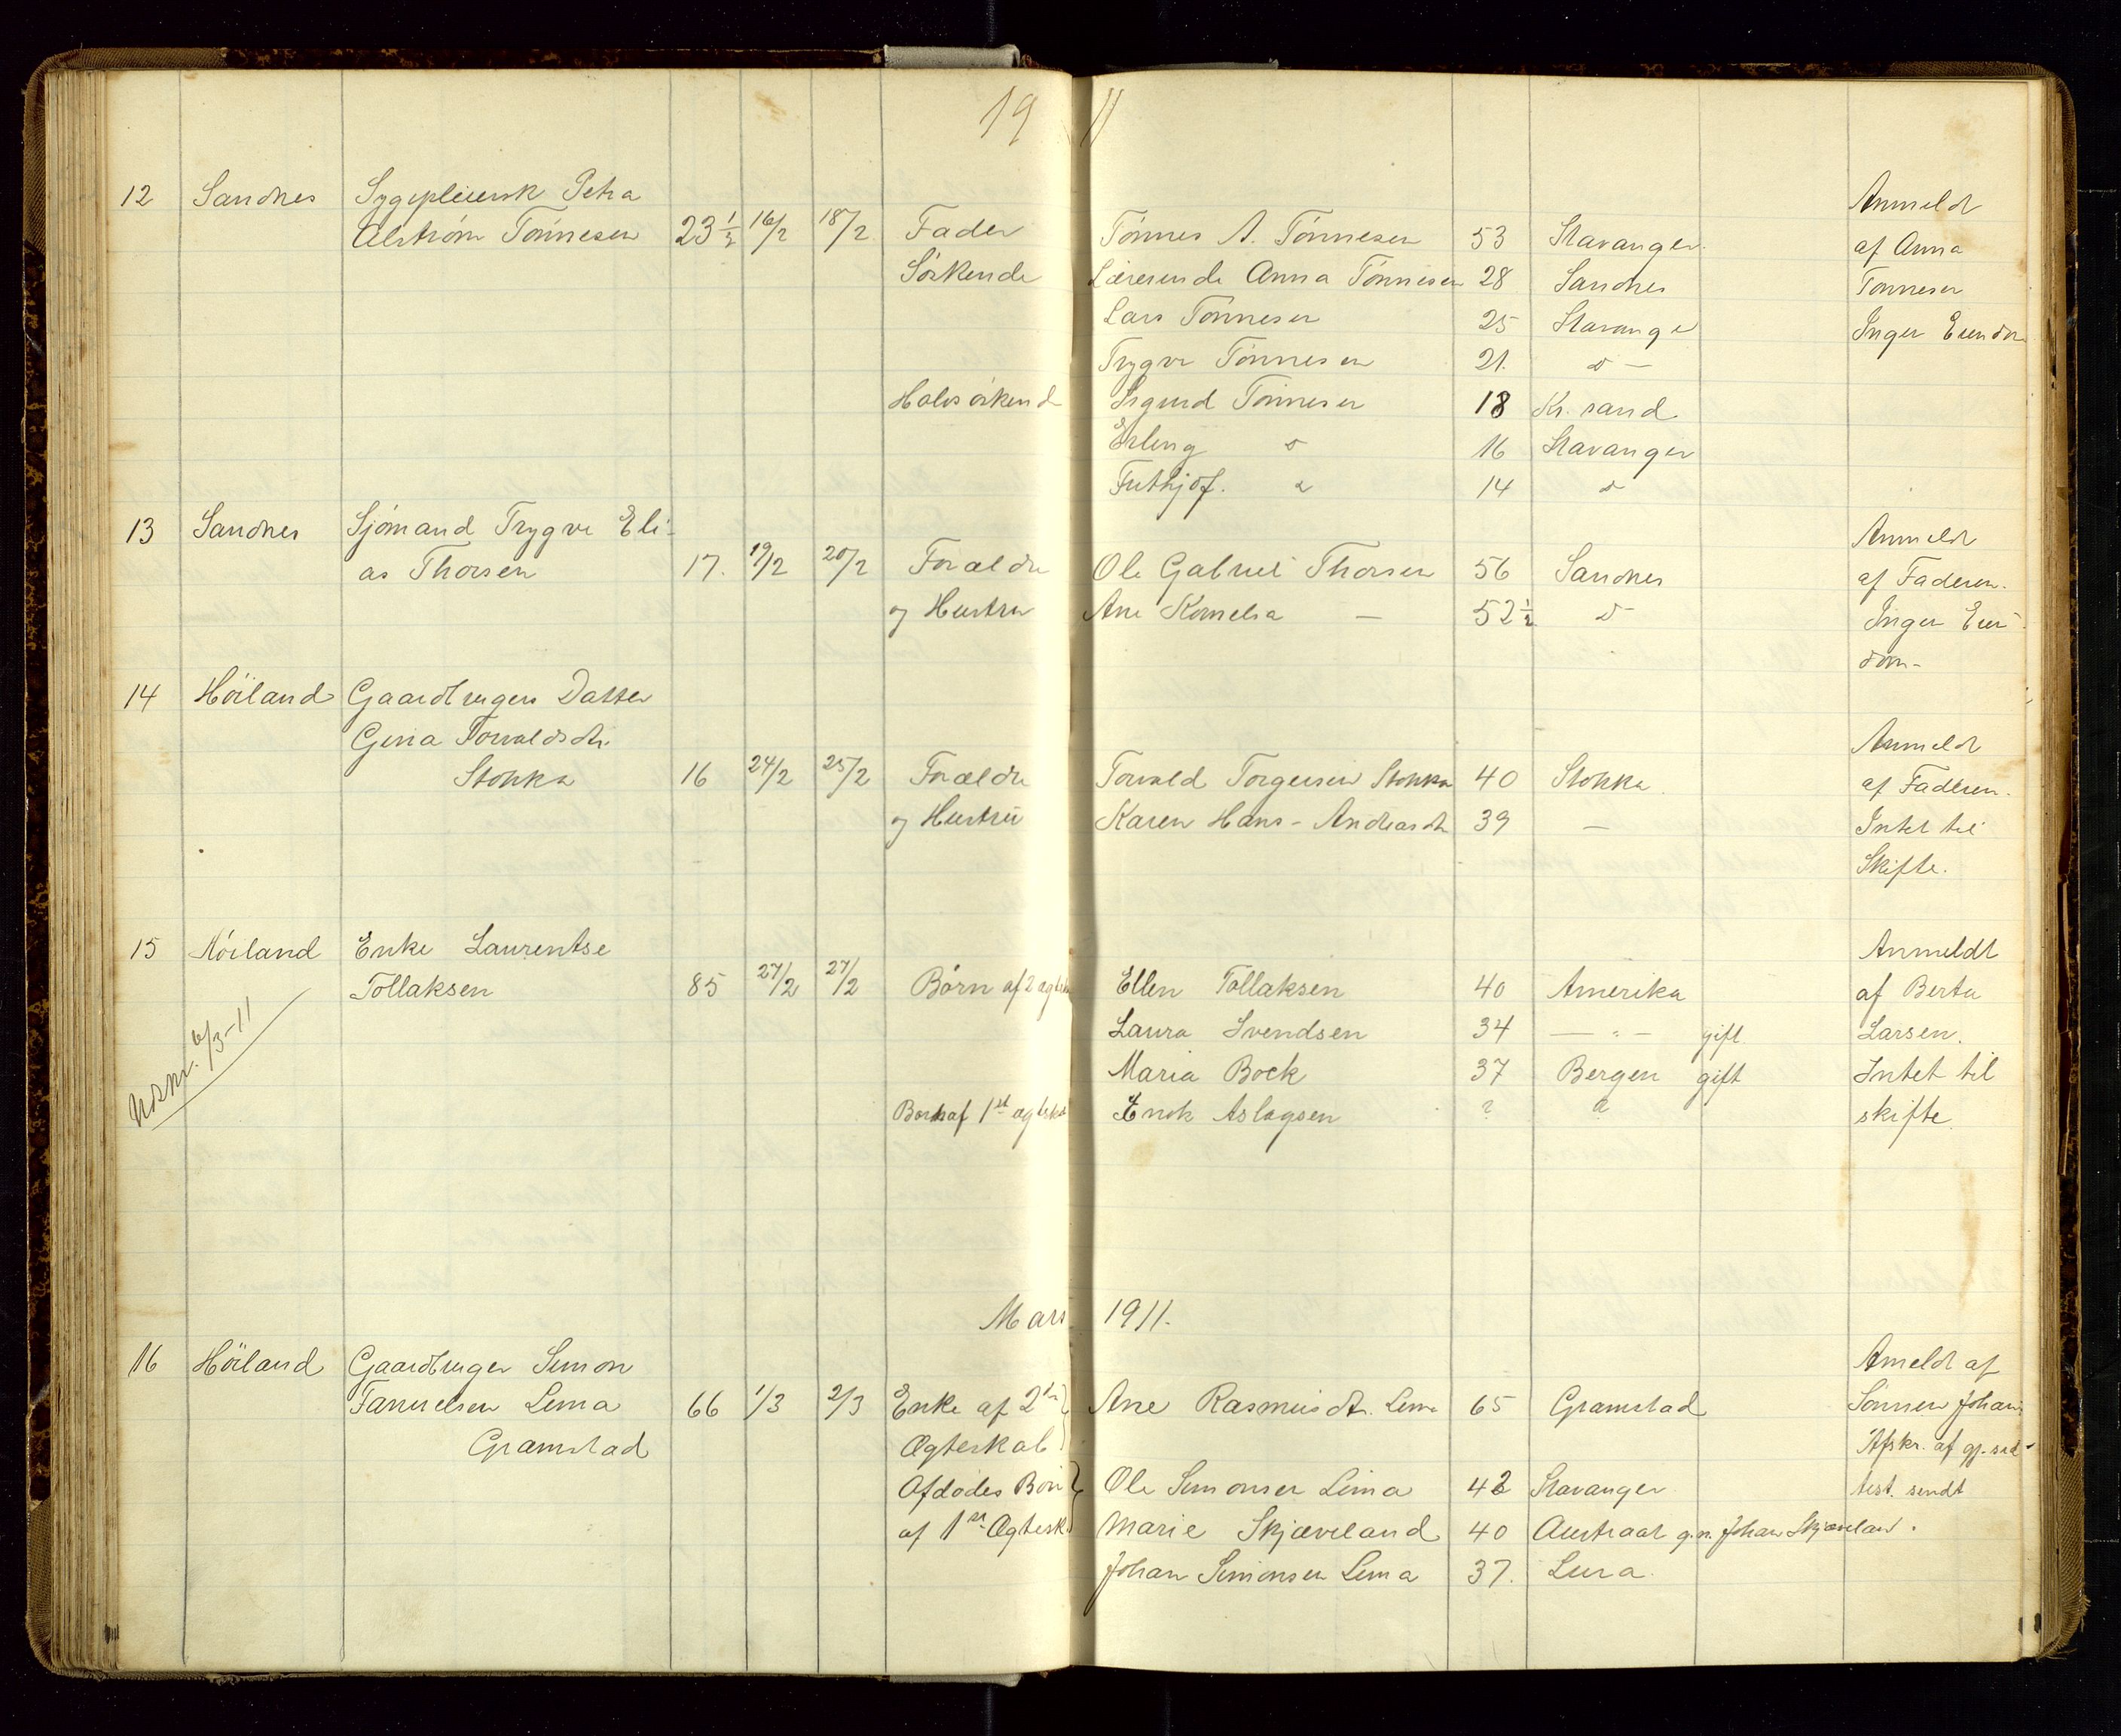 19 11
12 Sandnes Sygepleiersk Petra Anmeldt
Alstrøm Tønnesen 23½ 16/2 18/2 Fader Tønnes A. Tønnesen 53 Stavanger. af Anna
Söskende Lærerinde Anna Tønnesen 28 Sandnes Tønnesen
Lars Tønnesen 25 Stavanger Ingen Eiendom
Trygve Tønnesen 21. do —
Halvsöskend Sigurd Tønnesen 18 Kr. sand
Erling do 16 Stavanger
Frithjof. do 14 do
13 Sandnes Sjømand Trygve Eli- Anmeldt
as Thorsen 17. 19/2 20/2 Forældre Ole Gabriel Thorsen 56 Sandnes af Faderen.
og Hustru Ane Kornelia — 52½ do Ingen Eien-
dom-
14 Höiland Gaardbrugers Datter
Gina Torvaldsdtr. Anmeldt
Stokka 16 24/2 25/2 Forældre Torvald Torgersen Stokka 40 Stokka. af Faderen.
og Hustru Karen Hans-Andreasdtr 39 — Intet til
Skifte.
15 Höiland Enke Laurentse Anmeldt
Tollaksen 85 27/2 27/2 Børn af 2 ægtesk Ellen Tollaksen 40 Amerika af Berta
Laura Svendsen 34 — " — gift Larsen.
Maria Bock 37 Bergen gift Intet til
6/3-11 Barn af 1st ægtesk Enok Aslagsen ? ? skifte.
Mars 1911.
16 Höiland Gaardbruger Simon Ameldt af
Fanuelsen Lima 66 1/3 2/3 Enke af 2det Ane Rasmusdtr. Lima 65 Gramstad Sønnen Johan.
Gramstad Ægteskab Afskr. af gj.
Afdødes Børn Ole Simonsen Lima 42 Stavanger test. sendt
af 1st Ægtesk Marie Skjæveland 40 Austraat g.m. Johan Skjæveland.
Johan Simonsen Lima 37. Lura.